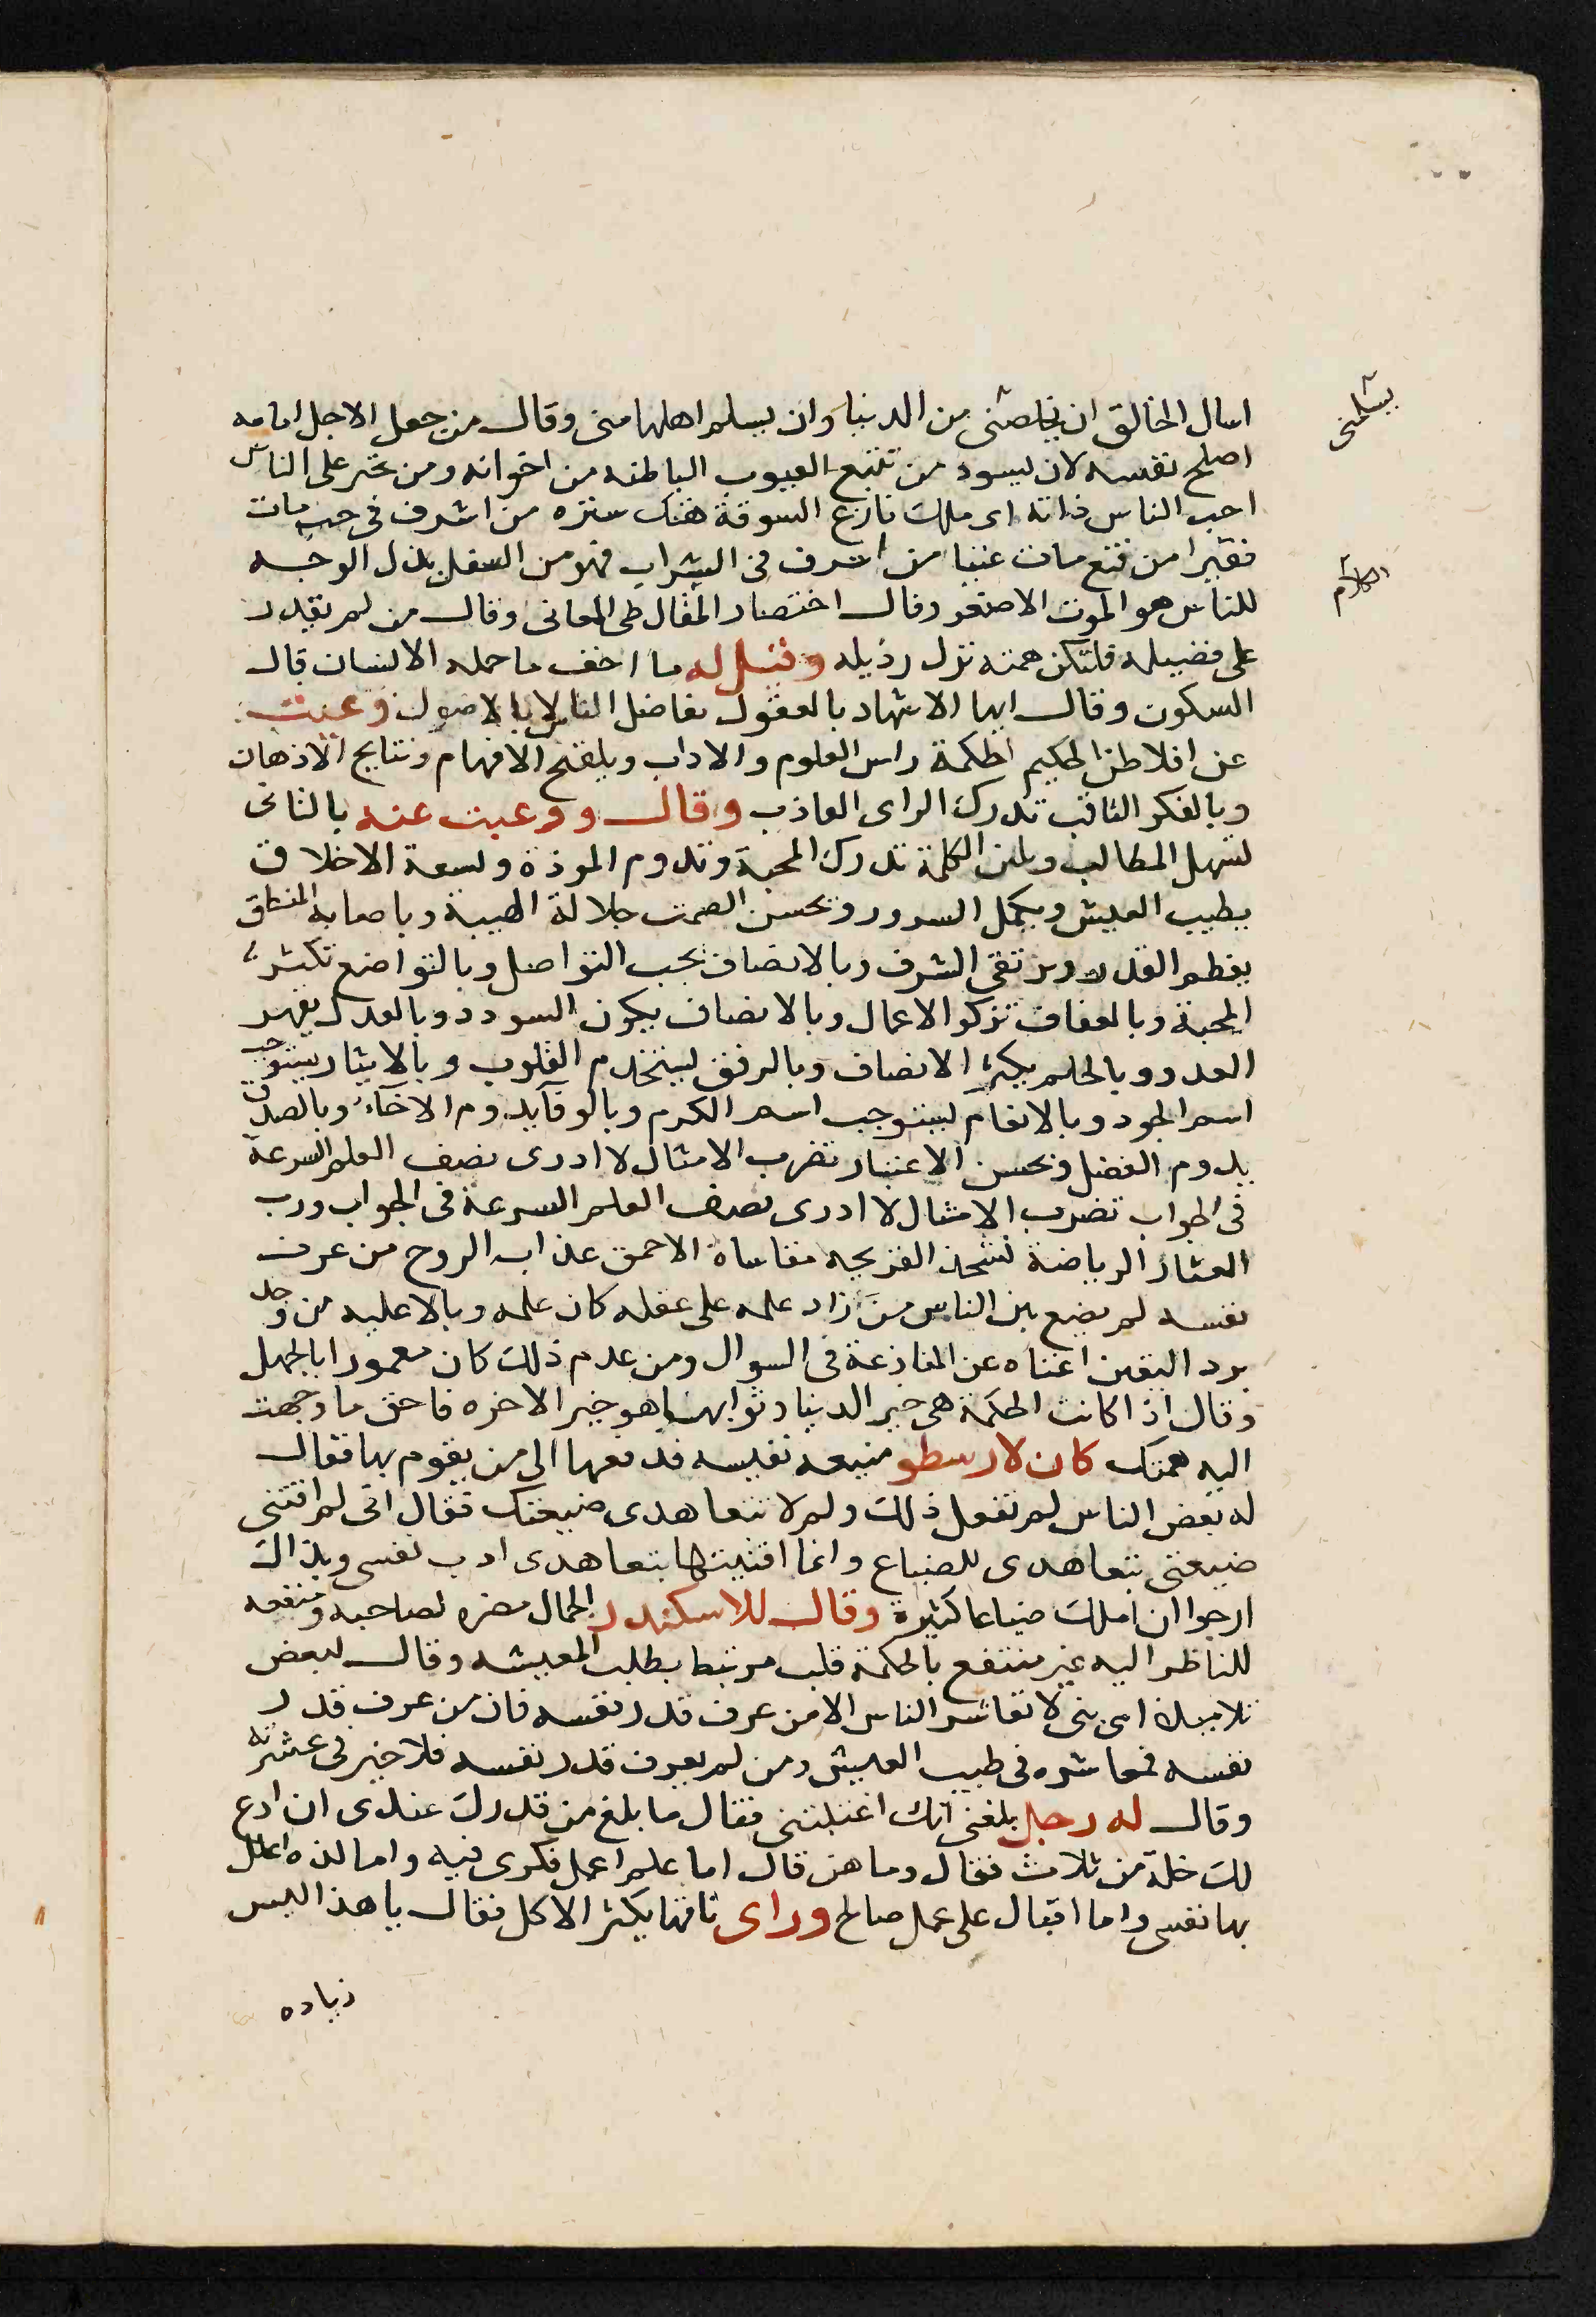 اسال الخالق ان يخلصنى من الدنيا وان يسلم اهلها منى وقال من جعل الاجل امامه
اصلح نفسه لان ليسود من تتبع العيوب الباطنه من اخوانه ومن تخبر على الناس
احب الناس ذلته اى ملك نازع السوقة هتك ستره من اشرف فى حب مات
فقيرا من قنع مات غنيا من اشرف فى الشراب فهو من السفل بذل الوجه
للناس هو الموت الاصغر وقال اختصار المقال طى المعانى وقال من لم يقدر
على فضيله فلتكن همته ترك رذيله وقيل له ما اخف ما حمله الانسان قال
السكون وقال ايها الاشهاد بالعقول تفاضل الناس لا بالاصول وعيت
عن افلاطن الحكيم الحكمة راس العلوم والاداب ويلقح الافهام ونتايج الاذهان
وبالفكر الثاقب تدرك الراى العاذب وقال ووعيت عنه بالثانى
تسهل المطالب وبلين الكلمة تدرك المحبة وتدوم المودة ولسعة الاخلاق
يطيب العيش ويكمل السرور وبحسن الصمت جلالة الهيبة وباصابة المنطق
يعظم القدر ويرتقى الشرف وبالانصاف يحب التواصل وبالتواضع تكثر
المحبة وبالعفاف تزكو الاعمال وبالانصاف يكون السودد وبالعدل يقهر
العدو وبالحلم يكثر الانصاف وبالرفق يستخدم القلوب وبالايثار يستوجب
اسم الجود وبالانعام يستوجب اسم الكرم وبالوفآيدوم الاخآء وبالصدق
يدوم الفضل وبحسن الاعتبار تضرب الامثال لا ادرى نصف العلم السرعة
فى الجواب تضرب الامثال لا ادرى نصف العلم السرعة فى الجواب ورب
العثار الرياضة تشحذ القريحه مقاساة الاحمق عذاب الروح من عرف
نفسه لم يضع بين الناس من زاد علمه على عقله كان علمه وبالا عليه من وجد
برد اليقين اغناه عن المنازعة فى السوال ومن عدم ذلك كان مغمورا بالجهل
وقال اذا كانت الحكمة هى خير الدنيا وثوابها هو خير الاخره فاحق ما وجهت
اليه همتك كان لارسطو ضيعه نفيسه فدفعها الى من يقوم بها فقال
له بعض الناس لم تفعل ذلك ولم لا تتعاهدى ضيعتك فقال انى لم اقتنى
ضيعتى بتعاهدى للضياع وانما اقتنيتها بتعاهدى ادب نفسى وبذلك
ارجوا ان املك ضياعا كثيرة وقال للاسكندر الجمال مضره لصاحبه ومنفعه
للناظر اليه غير منتفع بالحكمة قلب مرتبط بطلب المعيشه وقال لبعض
تلاميذه اى بنى لا تعاشر الناس الا من عرف قدر نفسه فان من عرف قدر
نفسه فعاشره فى طيب العيش ومن لم يعرف قدر نفسه فلا خير فى عشرته
وقال له رجل بلغنى انك اغتبتنى فقال ما بلغ من قدرك عندى ان ادع
لك خلة من ثلاث فقال وما هن قال اما علم اعمل فكرى فيه واما لذه اعلل
بها نفسى واما اقبال على عمل صالح وراى ناقها يكثر الاكل فقال يا هذا ليس
زياده
يسلمنى
الكلام